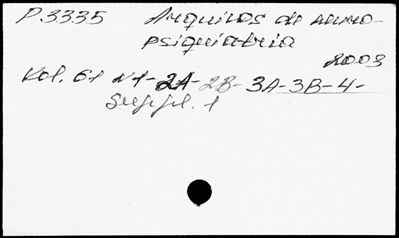 P.3335 Arquivos de neuro-
psiquiatria
2003
Vol. 61 N1-2A-2B-3A-3B-4-
Suppl. 1